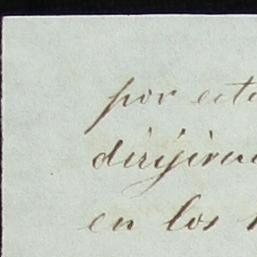 por est
dirijirm
en los